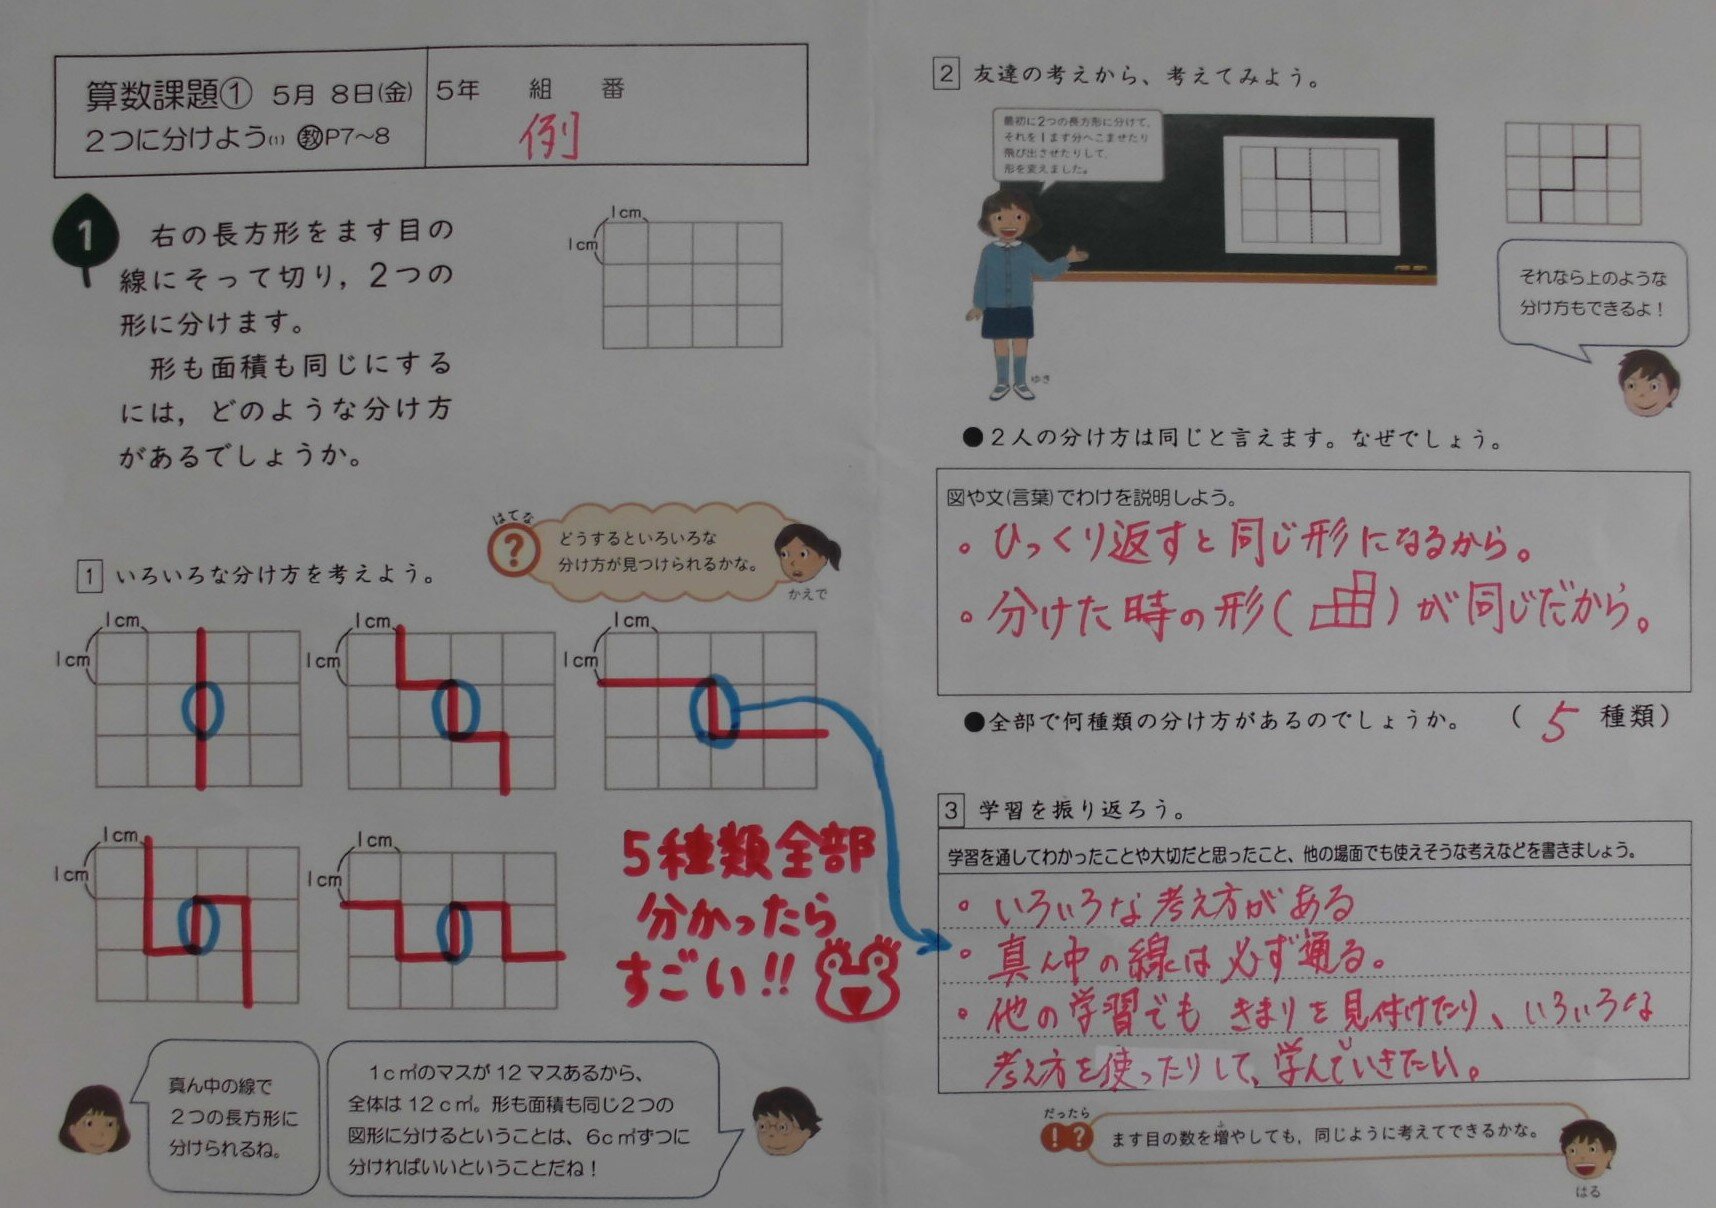 算数課題① 5月 8日(金)
2つに分けよう(1) ㊙P7～8
5年 組 番
例
1
右の長方形をます目の
線にそって切り，2つの
形に分けます。
形も面積も同じにする
には，どのような分け方
があるでしょうか。
1cm
1cm
はてな
?
どうするといろいろな
分け方が見つけられるかな。
かえで
1 いろいろな分け方を考えよう。
1cm
1cm
1cm
1cm
1cm
1cm
1cm
1cm
1cm
1cm
5種類全部
分かったら
すごい!!
真ん中の線で
2つの長方形に
分けられるね。
1c㎡のマスが12マスあるから、
全体は12c㎡。形も面積も同じ2つの
図形に分けるということは、6c㎡ずつに
分ければいいということだね！
2 友達の考えから、考えてみよう。
最初に2つの長方形に分けて、
それを1ます分へこませたり
飛び出させたりして、
形を変えました。
ゆき
それなら上のような
分け方もできるよ！
●2人の分け方は同じと言えます。なぜでしょう。
図や文(言葉)でわけを説明しよう。
。ひっくり返すと同じ形になるから。
。分けた時の形( )が同じだから。
●全部で何種類の分け方があるのでしょうか。 （ 5 種類）
3 学習を振り返ろう。
学習を通してわかったことや大切だと思ったこと、他の場面でも使えそうな考えなどを書きましょう。
。いろいろな考え方がある
。真ん中の線は必ず通る。
。他の学習でもきまりを見付けたり、いろいろな
考え方を使ったりして、学んでいきたい。
だったら
!?
ふ
ます目の数を増やしても，同じように考えてできるかな。
はる